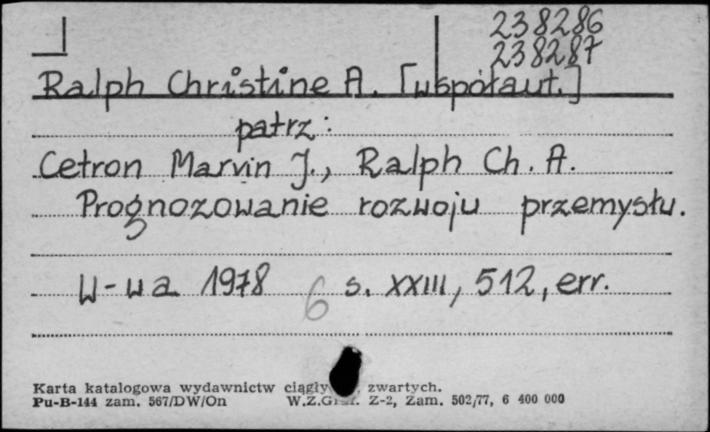 238286
238287
Ralph Christine A. [współaut.]
patrz:
Cetron Marvin J., Ralph Ch. A.
Prognozowanie rozwoju przemysłu.
W-wa 1978 6 s. XXIII, 512, err.
Karta katalogowa wydawnictw zwartych.
Pu-B-144 zam. 567/DW/On W.Z.Graf. Z-2, Zam. 502/77, 6 400 000